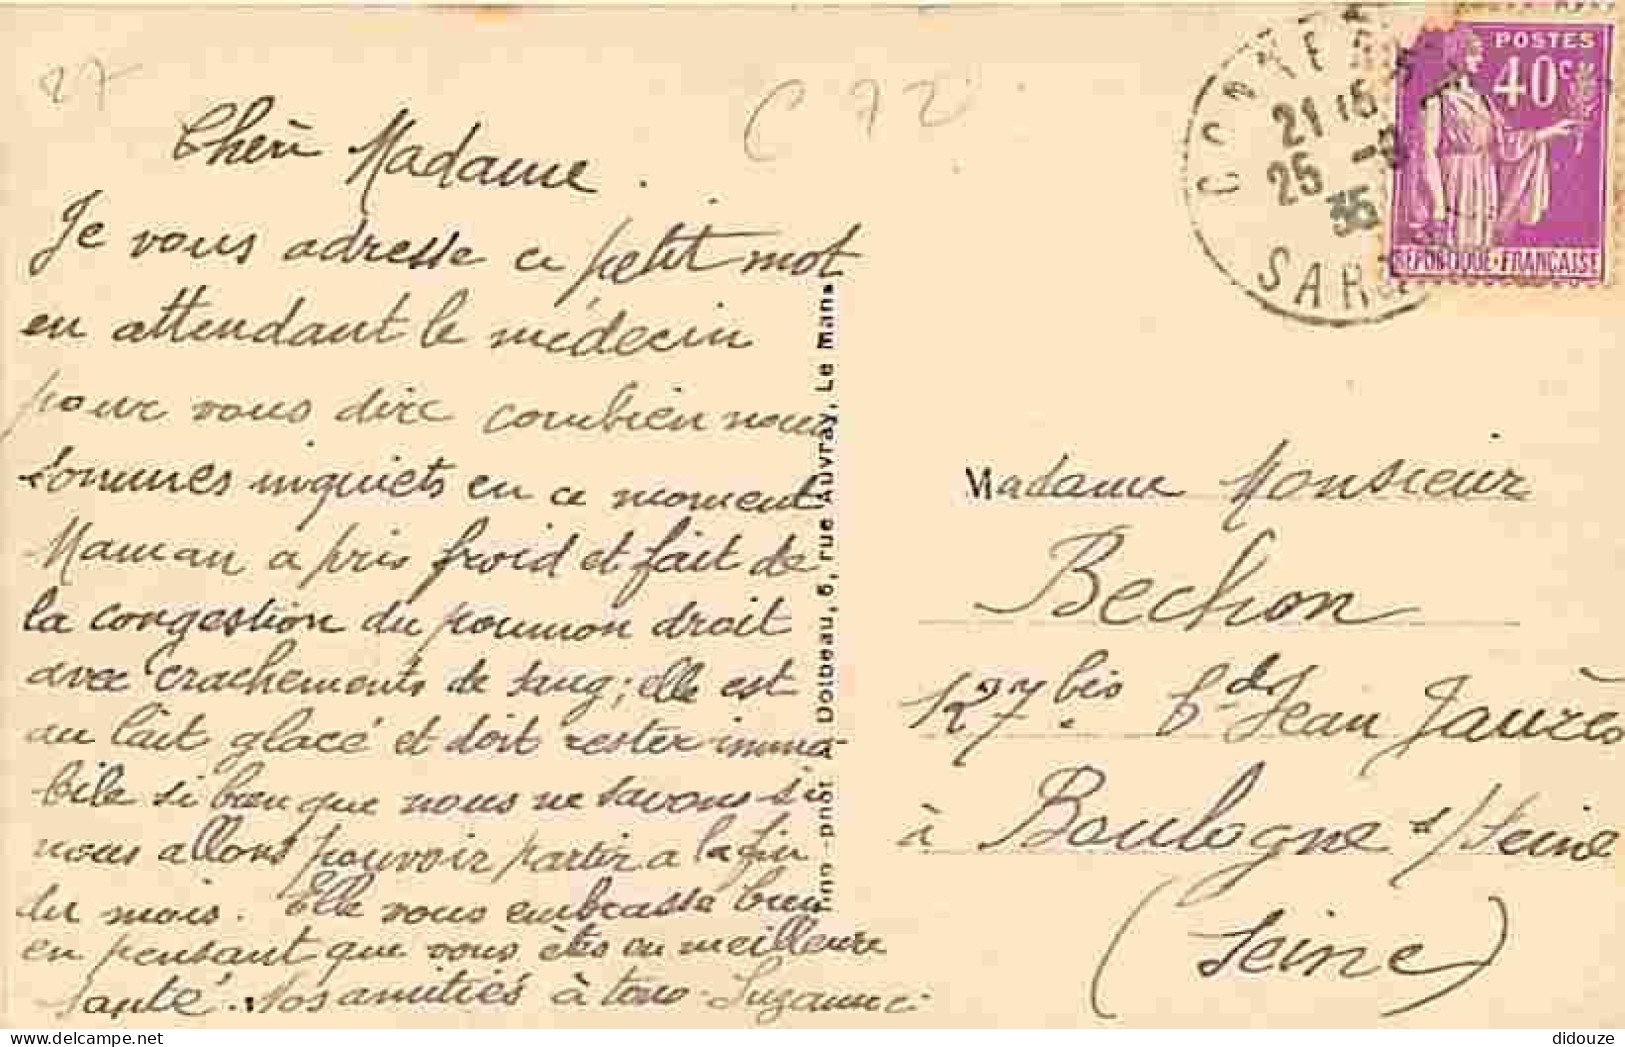 27
C 72
Chère Madame.
Je vous adresse ce petit mot
en attendant le médecin
pour vous dire combien nous
sommes inquiets en ce moment
Maman a pris froid et fait de
la congestion du poumon droit
avec crachements de sang; elle est
au lait glacé et doit rester immo-
bile si bien que nous ne savons si
nous allons pouvoir partir a la fin
du mois. Elle vous embrasse bien
en pensant que vous êtes en meilleure
santé. Nos amitiés à tous. Suzanne
phot. A. Dolbeau, 6, rue Auvray, Le Mans
21 15
25
35
SAR
POSTES
40c
REPUBLIQUE·FRANÇAISE
Madame Monsieur
Bechon
127 bis bd Jean Jaurès
à Boulogne s/Seine
(Seine)
didouze